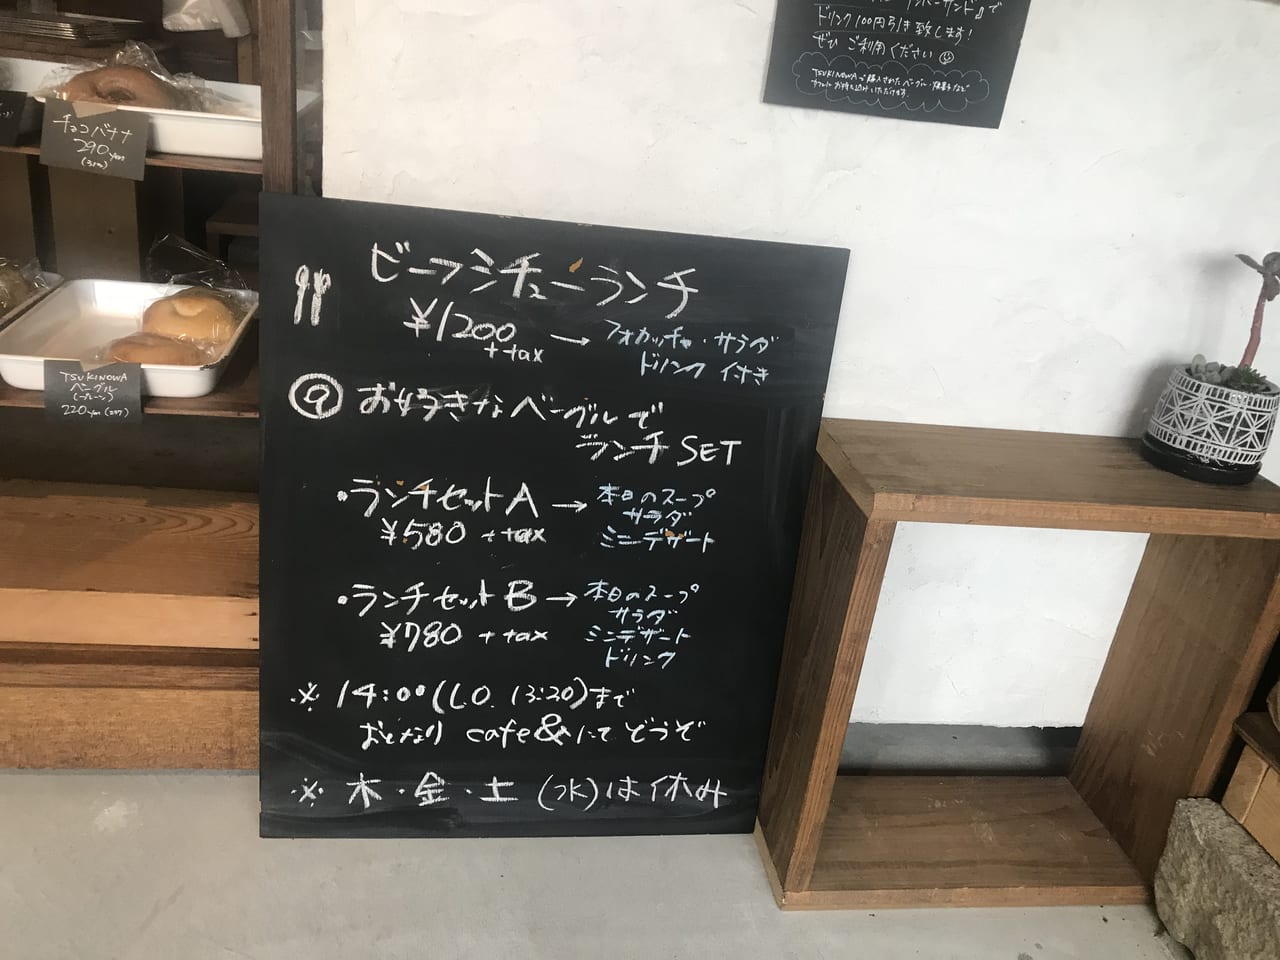 ドリンク100円引き致します!
ぜひ ご利用ください
TSUKINOWAで購入されたベーグル・焼菓子など
チョコバナナ
290yen
TSUKINOWA
ベーグル
(プレーン)
220yen (237)
ビーフシチューランチ
¥1200
+tax → フォカッチャ・サラダ
ドリンク付き
お好きなベーグルで
ランチSET
・ランチセットA → 本日のスープ
サラダ
¥580 +tax ミニデザート
・ランチセットB → 本日のスープ
サラダ
¥780 +tax ミニデザート
ドリンク
※ 14:00(L.O. 13:20)まで
おとなり cafe&にて どうぞ
※ 木・金・土 (水)は休み